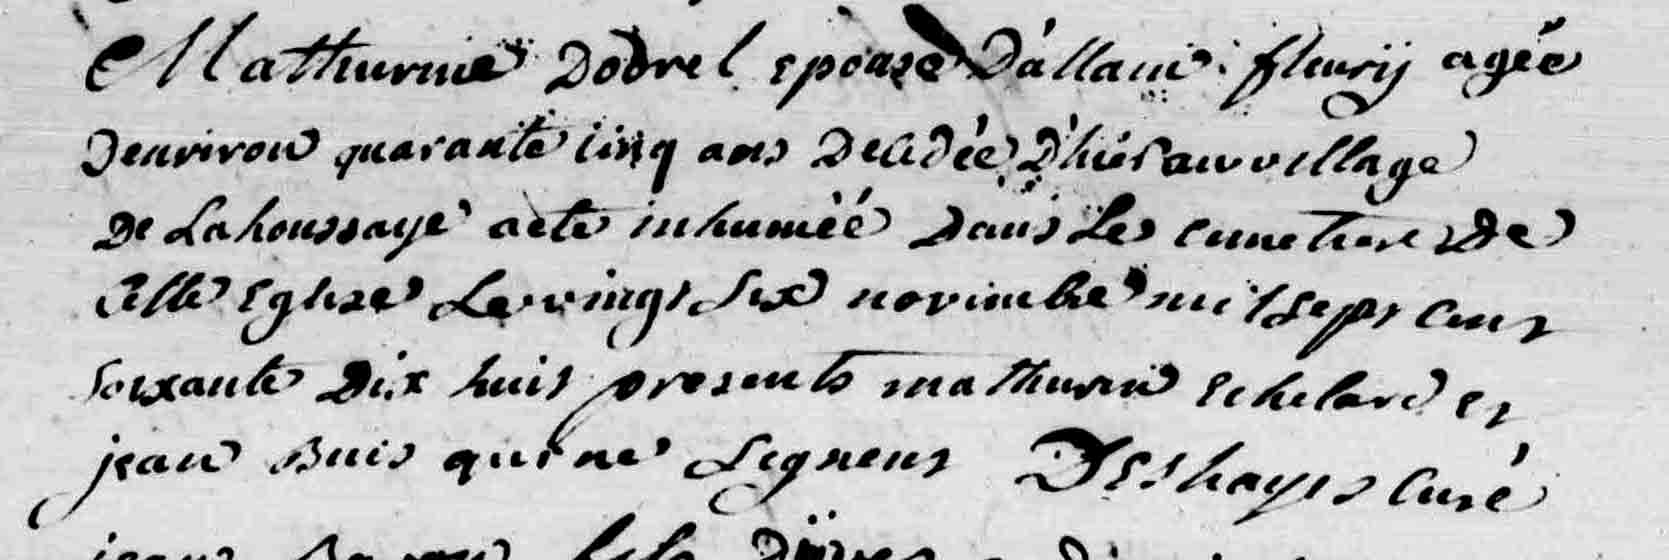 Mathurine Dodrel epouse D'allain fleurij agée
Denviron quarante cinq ans Decedée D'hiér au village
De Lahoussaye aeté inhumèé Dans Le cimetiere De
Cette Eglise Le vingt six novembre mil sept cent
soixante Dix huit presents mathurin Echelard et
jean Buis qui ne signent Deshayes Curé
jean